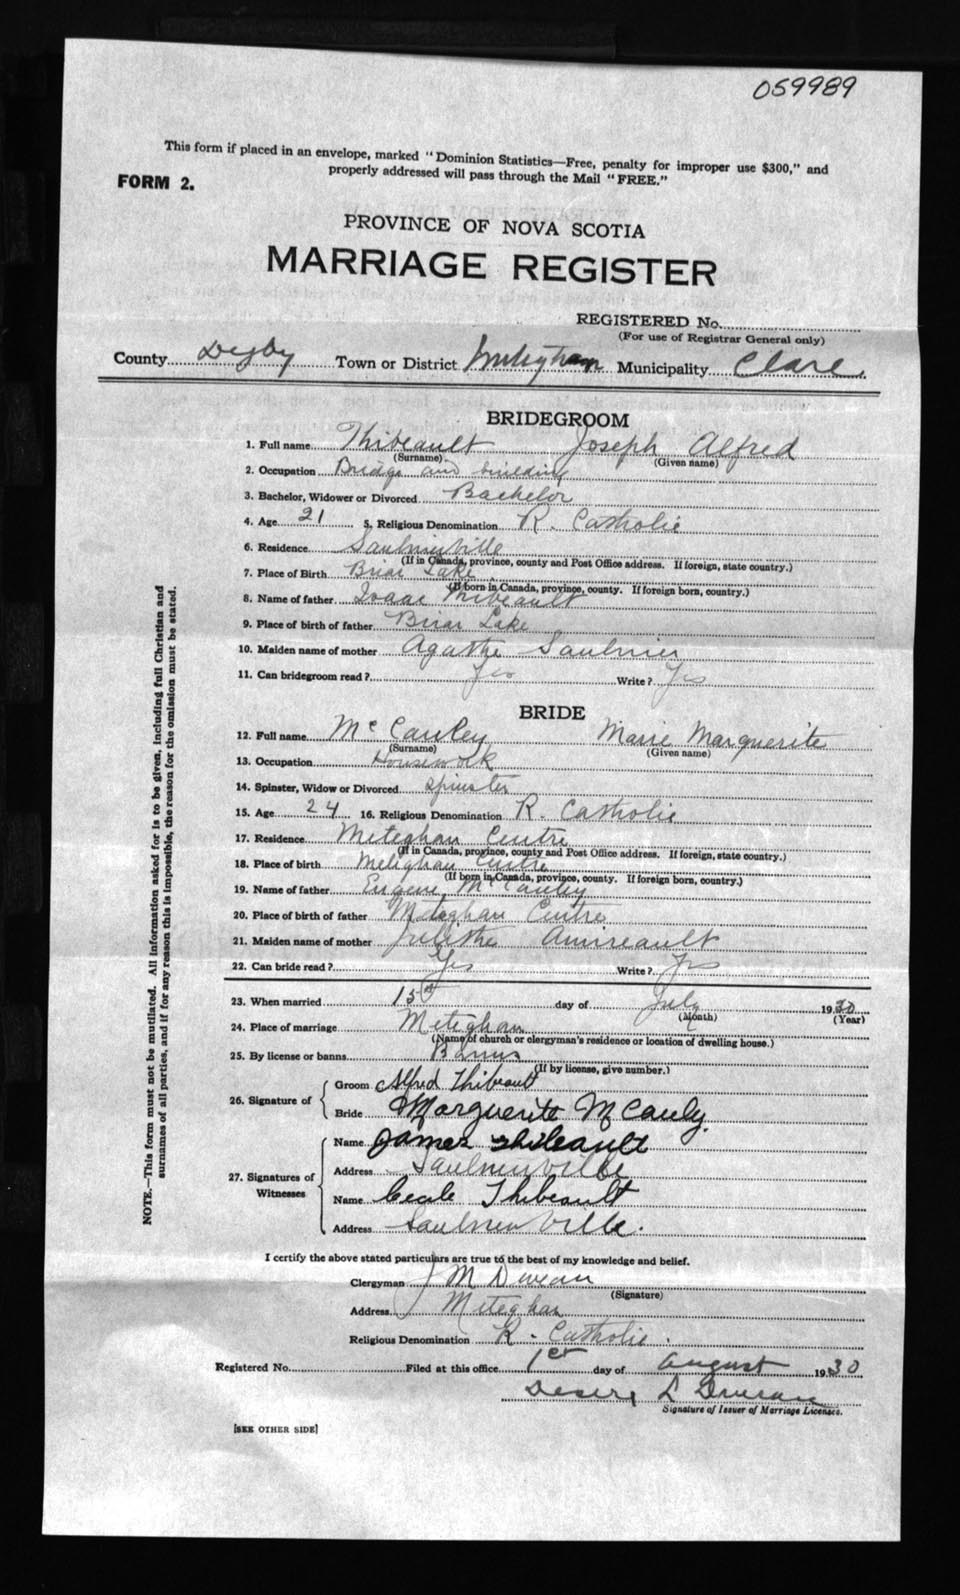 059989
This form if placed in an envelope, marked "Dominion Statistics—Free, penalty for improper use $300," and
properly addressed will pass through the Mail "FREE."
FORM 2.
PROVINCE OF NOVA SCOTIA
MARRIAGE REGISTER
REGISTERED No.
(For use of Registrar General only)
County Digby Town or District Meteghan Municipality Clare
BRIDEGROOM
1. Full name Thibeault Joseph Alfred
(Surname) (Given name)
2. Occupation Bridge and building
3. Bachelor, Widower or Divorced Bachelor
4. Age 21 5. Religious Denomination R. Catholic
6. Residence Saulnierville
(If in Canada, province, county and Post Office address. If foreign, state country.)
7. Place of Birth Briar Lake
(If born in Canada, province, county. If foreign born, country.)
8. Name of father Isaac Thibeault
9. Place of birth of father Briar Lake
10. Maiden name of mother Agathe Saulnier
11. Can bridegroom read? Yes Write? Yes
BRIDE
12. Full name McCauley Marie Marguerite
(Surname) (Given name)
13. Occupation Housework
14. Spinster, Widow or Divorced Spinster
15. Age 24 16. Religious Denomination R. Catholic
17. Residence Meteghan Centre
(If in Canada, province, county and Post Office address. If foreign, state country.)
18. Place of birth Meteghan Centre
(If born in Canada, province, county. If foreign born, country.)
19. Name of father Eugene McCauley
20. Place of birth of father Meteghan Centre
21. Maiden name of mother Amireault
22. Can bride read? Yes Write? Yes
23. When married 15th day of July 1930
(Month) (Year)
24. Place of marriage Meteghan
(Name of church or clergyman's residence or location of dwelling house.)
25. By license or banns Banns
(If by license, give number.)
26. Signature of
Groom Alfred Thibeault
Bride Marguerite McCauly.
27. Signatures of Witnesses
Name James Thibeault
Address Saulnierville
Name Cecile Thibeault
Address Saulnierville.
I certify the above stated particulars are true to the best of my knowledge and belief.
Clergyman J M
(Signature)
Address Meteghan
Religious Denomination R. Catholic.
Registered No. Filed at this office 1st day of August 1930
L
Signature of Issuer of Marriage Licenses.
[SEE OTHER SIDE]
NOTE.—This form must not be mutilated. All information asked for is to be given, including full Christian and
surnames of all parties, and if for any reason this is impossible, the reason for the omission must be stated.